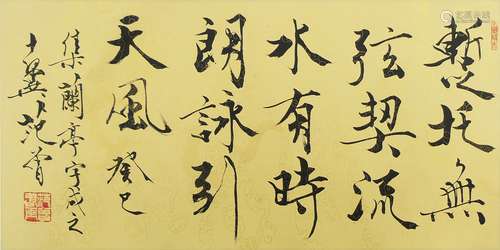 暫托無
弦契流
水有時
朗詠引
天風 癸巳
集蘭亭字成之
十翼范曾